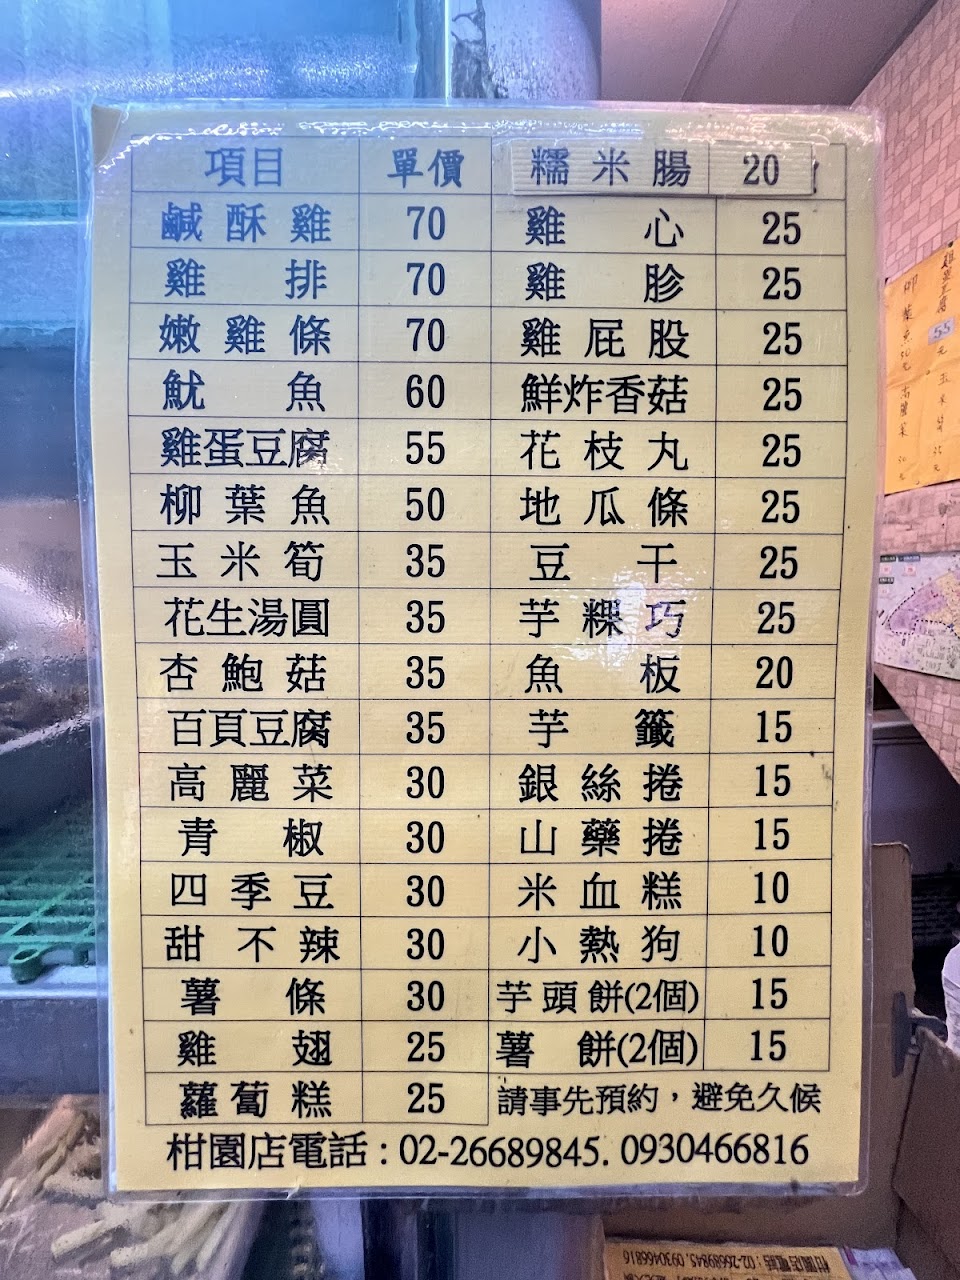 項目 單價 糯米腸 20
鹹酥雞 70 雞心 25
雞排 70 雞胗 25
嫩雞條 70 雞屁股 25
魷魚 60 鮮炸香菇 25
雞蛋豆腐 55 花枝丸 25
柳葉魚 50 地瓜條 25
玉米筍 35 豆干 25
花生湯圓 35 芋粿巧 25
杏鮑菇 35 魚板 20
百頁豆腐 35 芋籤 15
高麗菜 30 銀絲捲 15
青椒 30 山藥捲 15
四季豆 30 米血糕 10
甜不辣 30 小熱狗 10
薯條 30 芋頭餅(2個) 15
雞翅 25 薯餅(2個) 15
蘿蔔糕 25 請事先預約，避免久候
柑園店電話：02-26689845. 0930466816
雞蛋豆腐 55元 玉米筍 35元
柳葉魚 50元 高麗菜 30元
柑園店電話：02-26689845. 0930466816